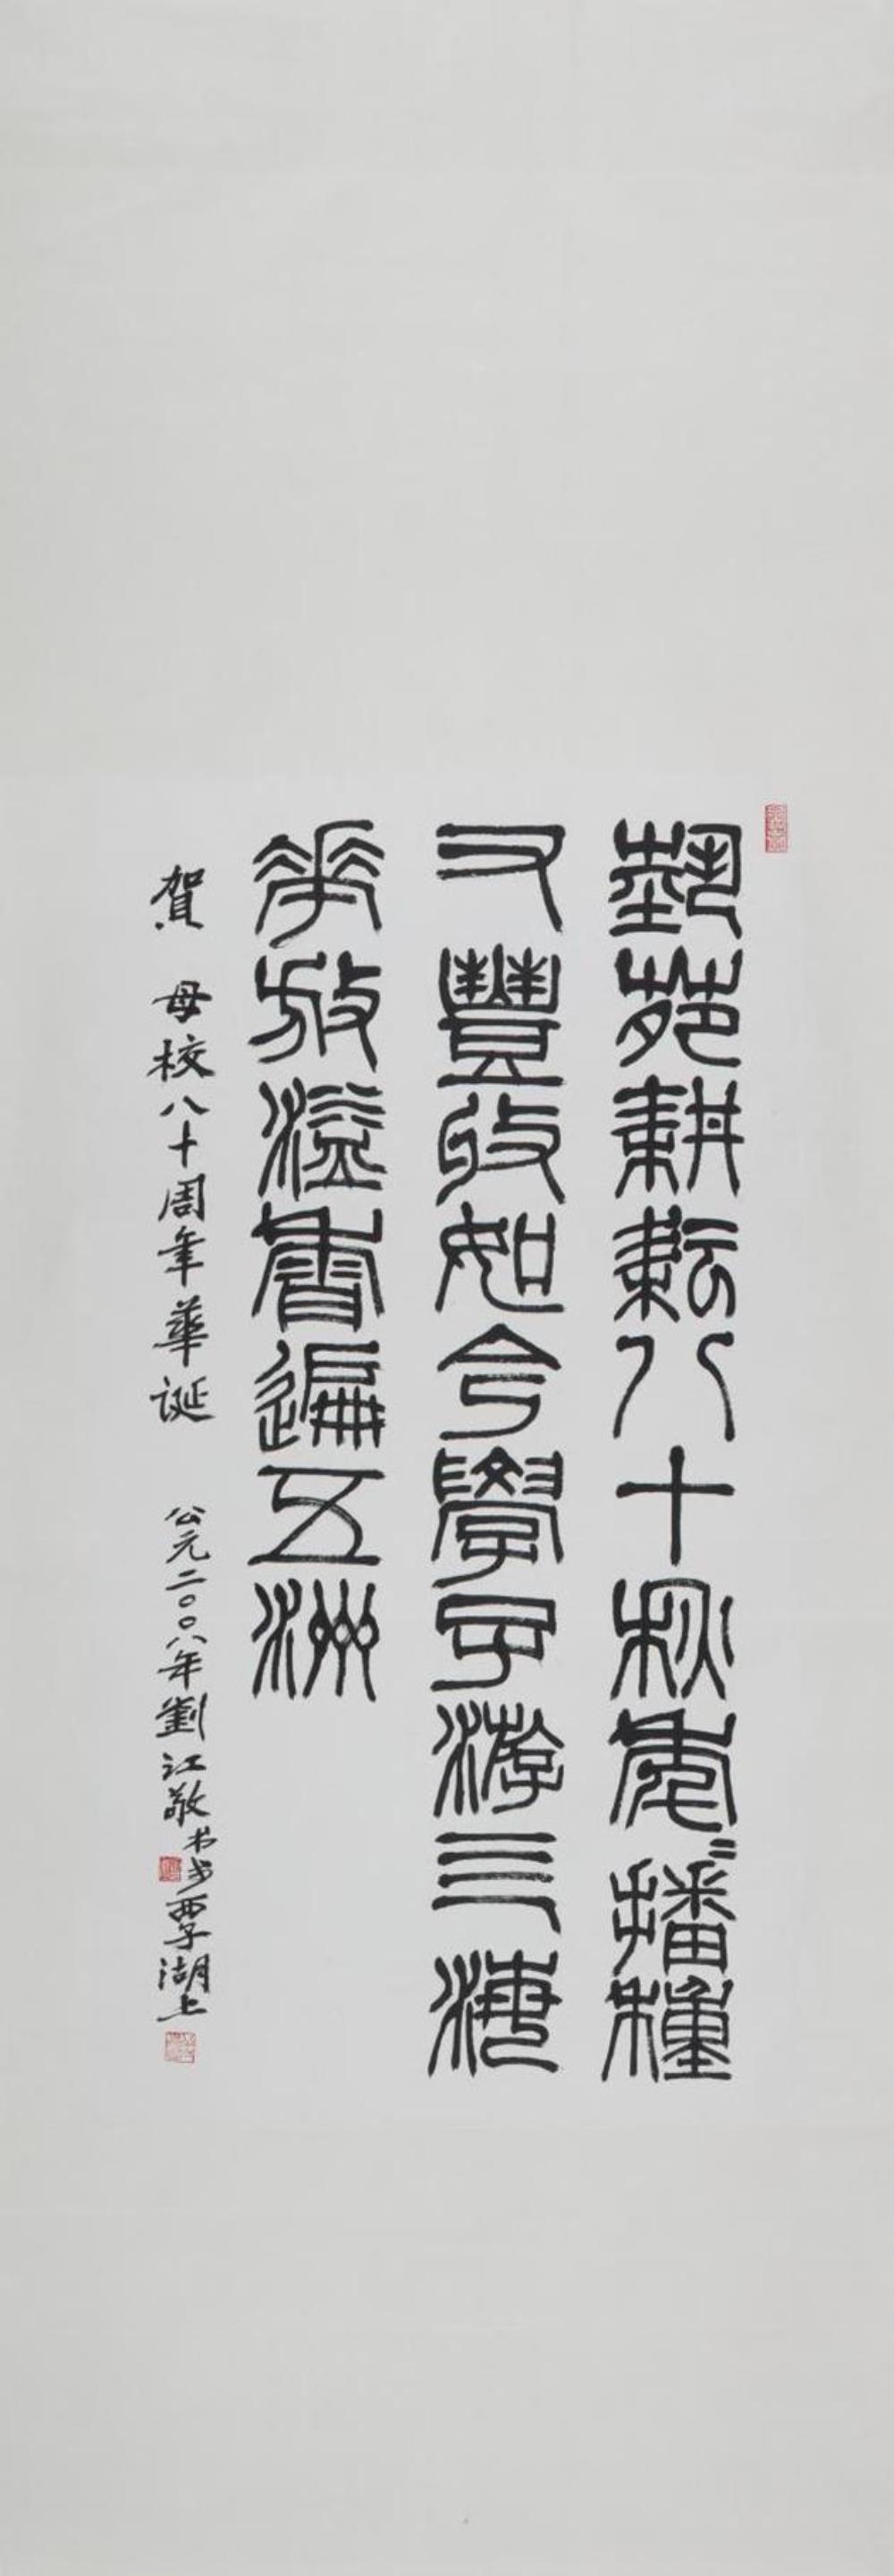 藝苑耕耘八十秋年〻播種
又豐收如今學子游三海
華放溢香遍五洲
賀 母校八十周年華誕 公元二〇〇八年劉江敬书於西子湖上